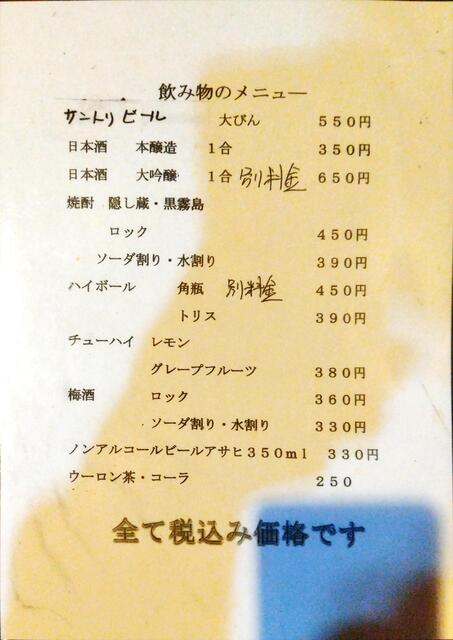 飲み物のメニュー
サントリビール 大びん 550円
日本酒 本醸造 1合 350円
日本酒 大吟醸 1合 別料金 650円
焼酎 隠し蔵・黒霧島
ロック 450円
ソーダ割り・水割り 390円
ハイボール 角瓶 別料金 450円
トリス 390円
チューハイ レモン
グレープフルーツ 380円
梅酒 ロック 360円
ソーダ割り・水割り 330円
ノンアルコールビールアサヒ350ml 330円
ウーロン茶・コーラ 250
全て税込み価格です